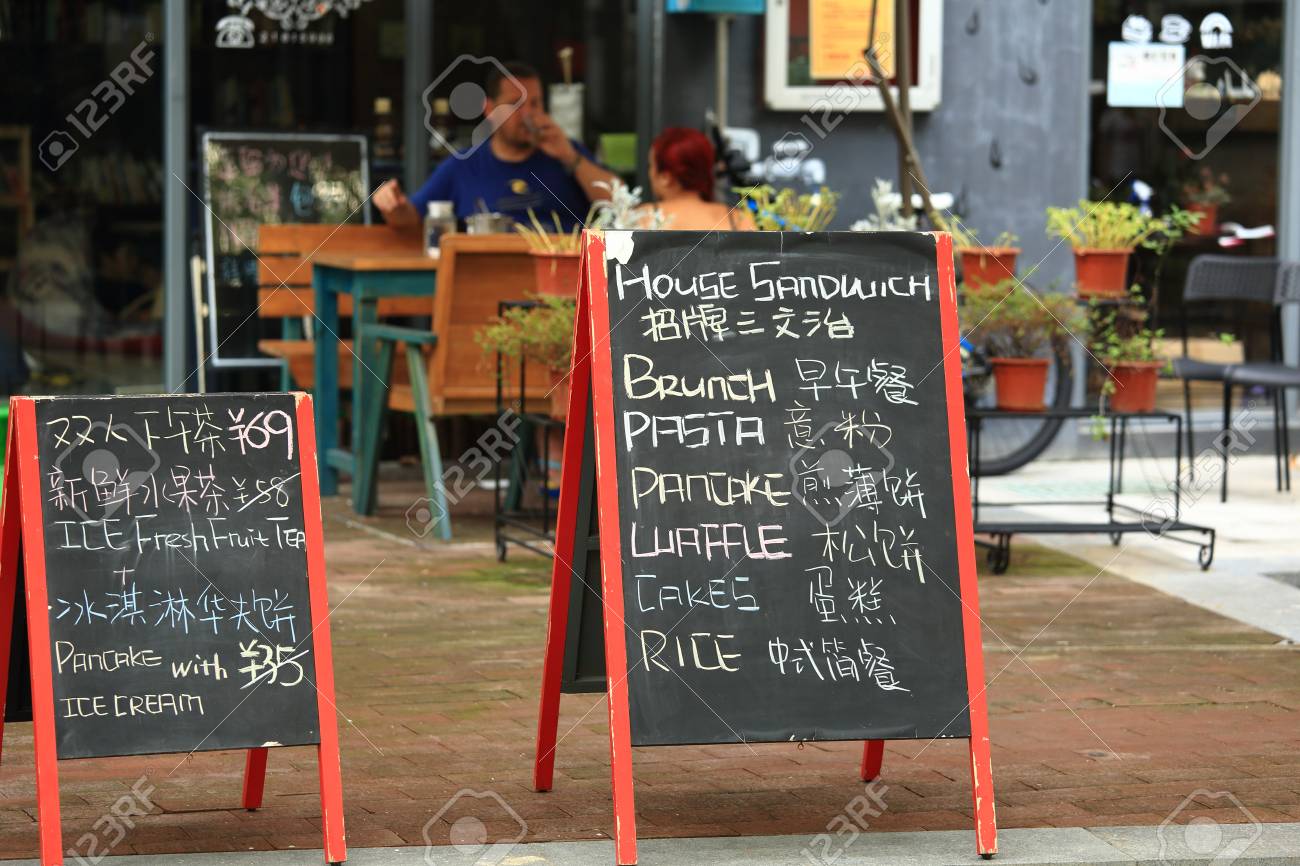 双人下午茶 ¥69
新鲜水果茶 ¥58
ICE Fresh Fruit TEA
+
冰淇淋华夫饼
PANCAKE with ¥35
ICE CREAM
HOUSE SANDWICH
招牌三文治
BRUNCH 早午餐
PASTA 意粉
PANCAKE 煎薄饼
WAFFLE 松饼
CAKES 蛋糕
RICE 中式简餐
123RF